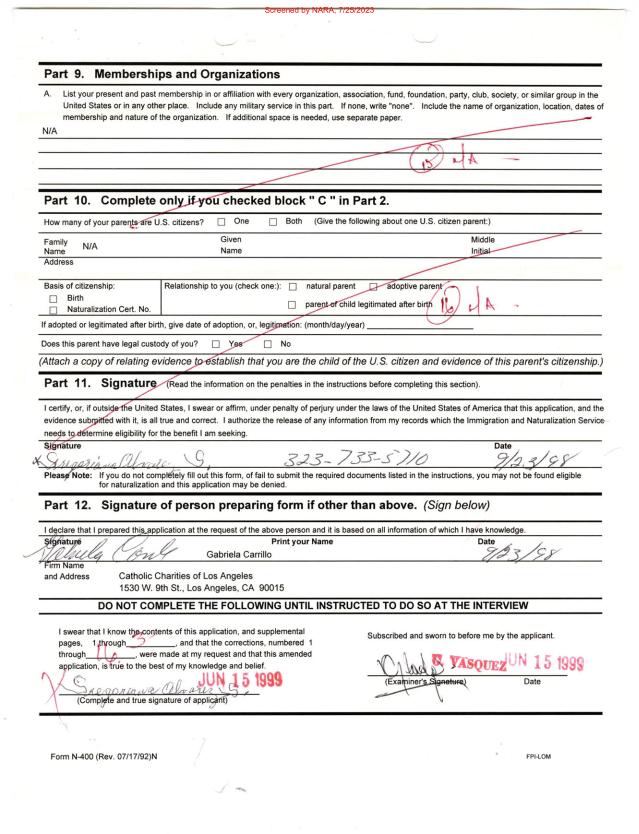 Screened by NARA, 7/25/2023
Part 9. Memberships and Organizations
A. List your present and past membership in or affiliation with every organization, association, fund, foundation, party, club, society, or similar group in the
United States or in any other place. Include any military service in this part. If none, write "none". Include the name of organization, location, dates of
membership and nature of the organization. If additional space is needed, use separate paper.
N/A
15 N/A —
Part 10. Complete only if you checked block " C " in Part 2.
How many of your parents are U.S. citizens? ☐ One ☐ Both (Give the following about one U.S. citizen parent:)
Family Name N/A Given Name Middle Initial
Address
Basis of citizenship: Relationship to you (check one:): ☐ natural parent ☐ adoptive parent
☐ Birth
☐ Naturalization Cert. No. ☐ parent of child legitimated after birth 16 N/A -
If adopted or legitimated after birth, give date of adoption, or, legitimation: (month/day/year)
Does this parent have legal custody of you? ☐ Yes ☐ No
(Attach a copy of relating evidence to establish that you are the child of the U.S. citizen and evidence of this parent's citizenship.)
Part 11. Signature (Read the information on the penalties in the instructions before completing this section).
I certify, or, if outside the United States, I swear or affirm, under penalty of perjury under the laws of the United States of America that this application, and the
evidence submitted with it, is all true and correct. I authorize the release of any information from my records which the Immigration and Naturalization Service
needs to determine eligibility for the benefit I am seeking.
Signature Date
Gregoriana Alvarez S. 323-733-5710 9/23/98
Please Note: If you do not completely fill out this form, of fail to submit the required documents listed in the instructions, you may not be found eligible
for naturalization and this application may be denied.
Part 12. Signature of person preparing form if other than above. (Sign below)
I declare that I prepared this application at the request of the above person and it is based on all information of which I have knowledge.
Signature Print your Name Date
Gabriela Carrillo 9/23/98
Firm Name
and Address Catholic Charities of Los Angeles
1530 W. 9th St., Los Angeles, CA 90015
DO NOT COMPLETE THE FOLLOWING UNTIL INSTRUCTED TO DO SO AT THE INTERVIEW
I swear that I know the contents of this application, and supplemental
pages, 1 through 3, and that the corrections, numbered 1
through 16, were made at my request and that this amended
application, is true to the best of my knowledge and belief.
JUN 15 1999
Gregoriana Alvarez S.
(Complete and true signature of applicant)
Subscribed and sworn to before me by the applicant.
VASQUEZ JUN 15 1999
(Examiner's Signature) Date
Form N-400 (Rev. 07/17/92)N FPI-LOM